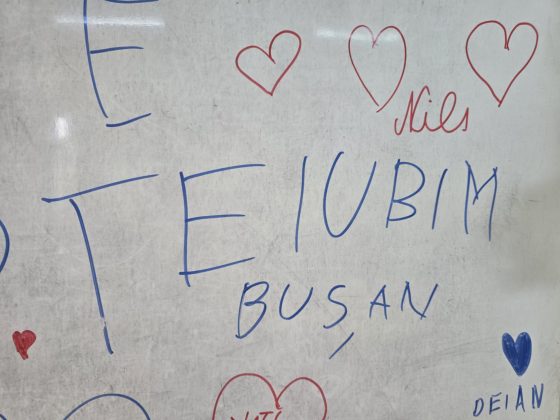 E
Nils
TE IUBIM
BUȘAN
DEIAN